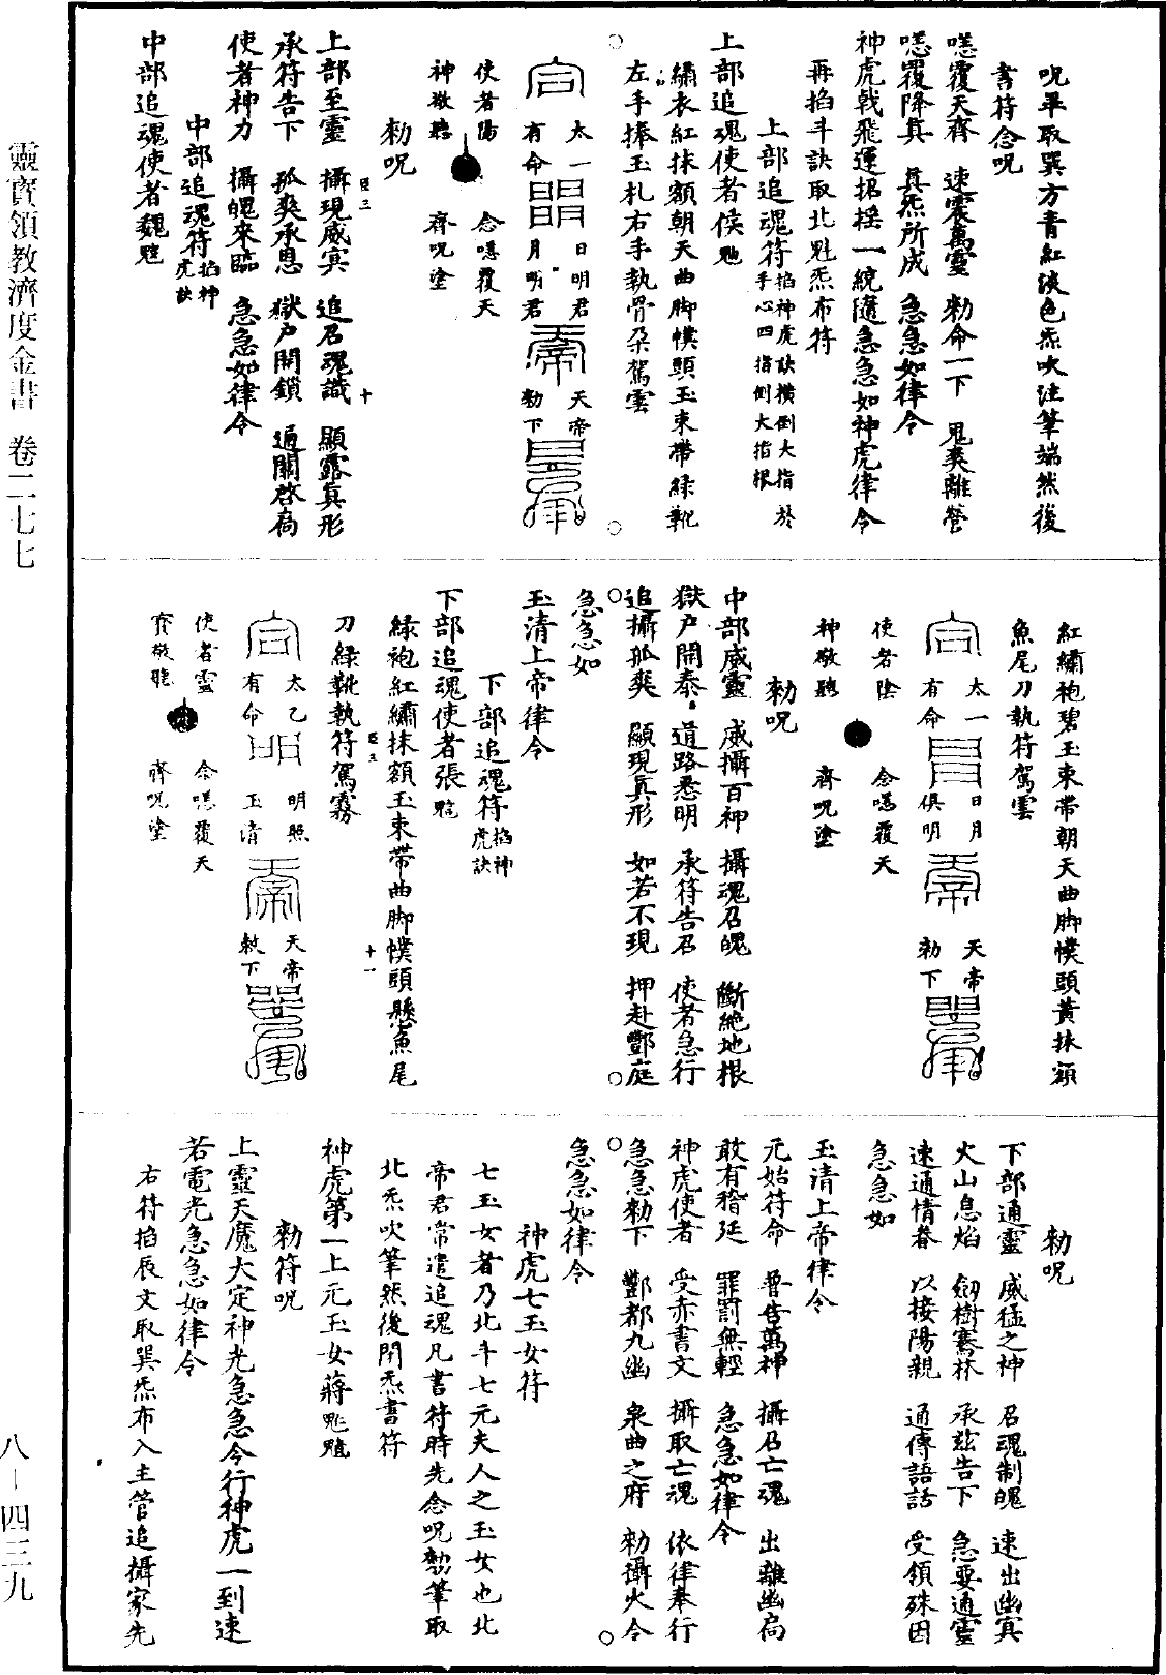 靈寶領教濟度金書 卷二七七
八－四三九
呪畢取巽方青紅淡色炁吹注筆端然後
書符念呪
嘻覆天齊 速震萬靈 勑命一下 鬼爽離營
嘻覆降真 真炁所成 急急如律令
神虎戟飛運招搖一統隨急急如神虎律令
再掐斗訣取北魁炁布符
上部追魂符掐神虎訣橫倒大指於
手心四指倒大指根
上部追魂使者侯
繡衣紅抹額朝天曲脚幞頭玉束帶綠靴
左手捧玉札右手執骨朶駕雲
太一 日明君 天帝
有命 月明君 勑下
使者陽 念嘻覆天
神敬聽 齊呪塗
勑呪
上部至靈 攝現威冥 追召魂識 顯露真形
承符告下 孤爽承恩 獄戶開鎖 通關啓扃
使者神力 攝魄來臨 急急如律令
中部追魂符掐神
虎訣
中部追魂使者魏
紅繡袍碧玉束帶朝天曲脚幞頭黃抹額
魚尾刀執符駕雲
太一 日月 天帝
有命 俱明 勑下
使者陰 念嘻覆天
神敬聽 齊呪塗
勑呪
中部威靈 威攝百神 攝魂召魄 斷絕地根
獄戶開泰 道路悉明 承符告召 使者急行
追攝孤爽 顯現真形 如若不現 押赴酆庭
急急如
玉清上帝律令
下部追魂符掐神
虎訣
下部追魂使者張
綠袍紅繡抹額玉束帶曲脚幞頭懸魚尾
刀綠靴執符駕霧
太乙 明照 天帝
有命 玉清 敕下
使者靈 念嘻覆天
齊敬聽 齊呪塗
勑呪
下部通靈 威猛之神 召魂制魄 速出幽冥
火山息焰 劒樹騫林 承茲告下 急要通靈
速通情眷 以接陽親 通傳語話 受領殊因
急急如
玉清上帝律令
元始符命 普告萬神 攝召亡魂 出離幽扃
敢有稽廷 罪罰無輕 急急如律令
神虎使者 受赤書文 攝取亡魂 依律奉行
急急勑下 酆都九幽 泉曲之府 勑攝火令
急急如律令
神虎七玉女符
七玉女者乃北斗七元夫人之玉女也北
帝君常遣追魂凡書符時先念呪勑筆取
北炁吹筆然後閉炁書符
神虎第一上元玉女蔣
勑符呪
上靈天魔大定神光急急今行神虎一到速
若電光急急如律令
右符掐辰文取巽炁布入主管追攝家先